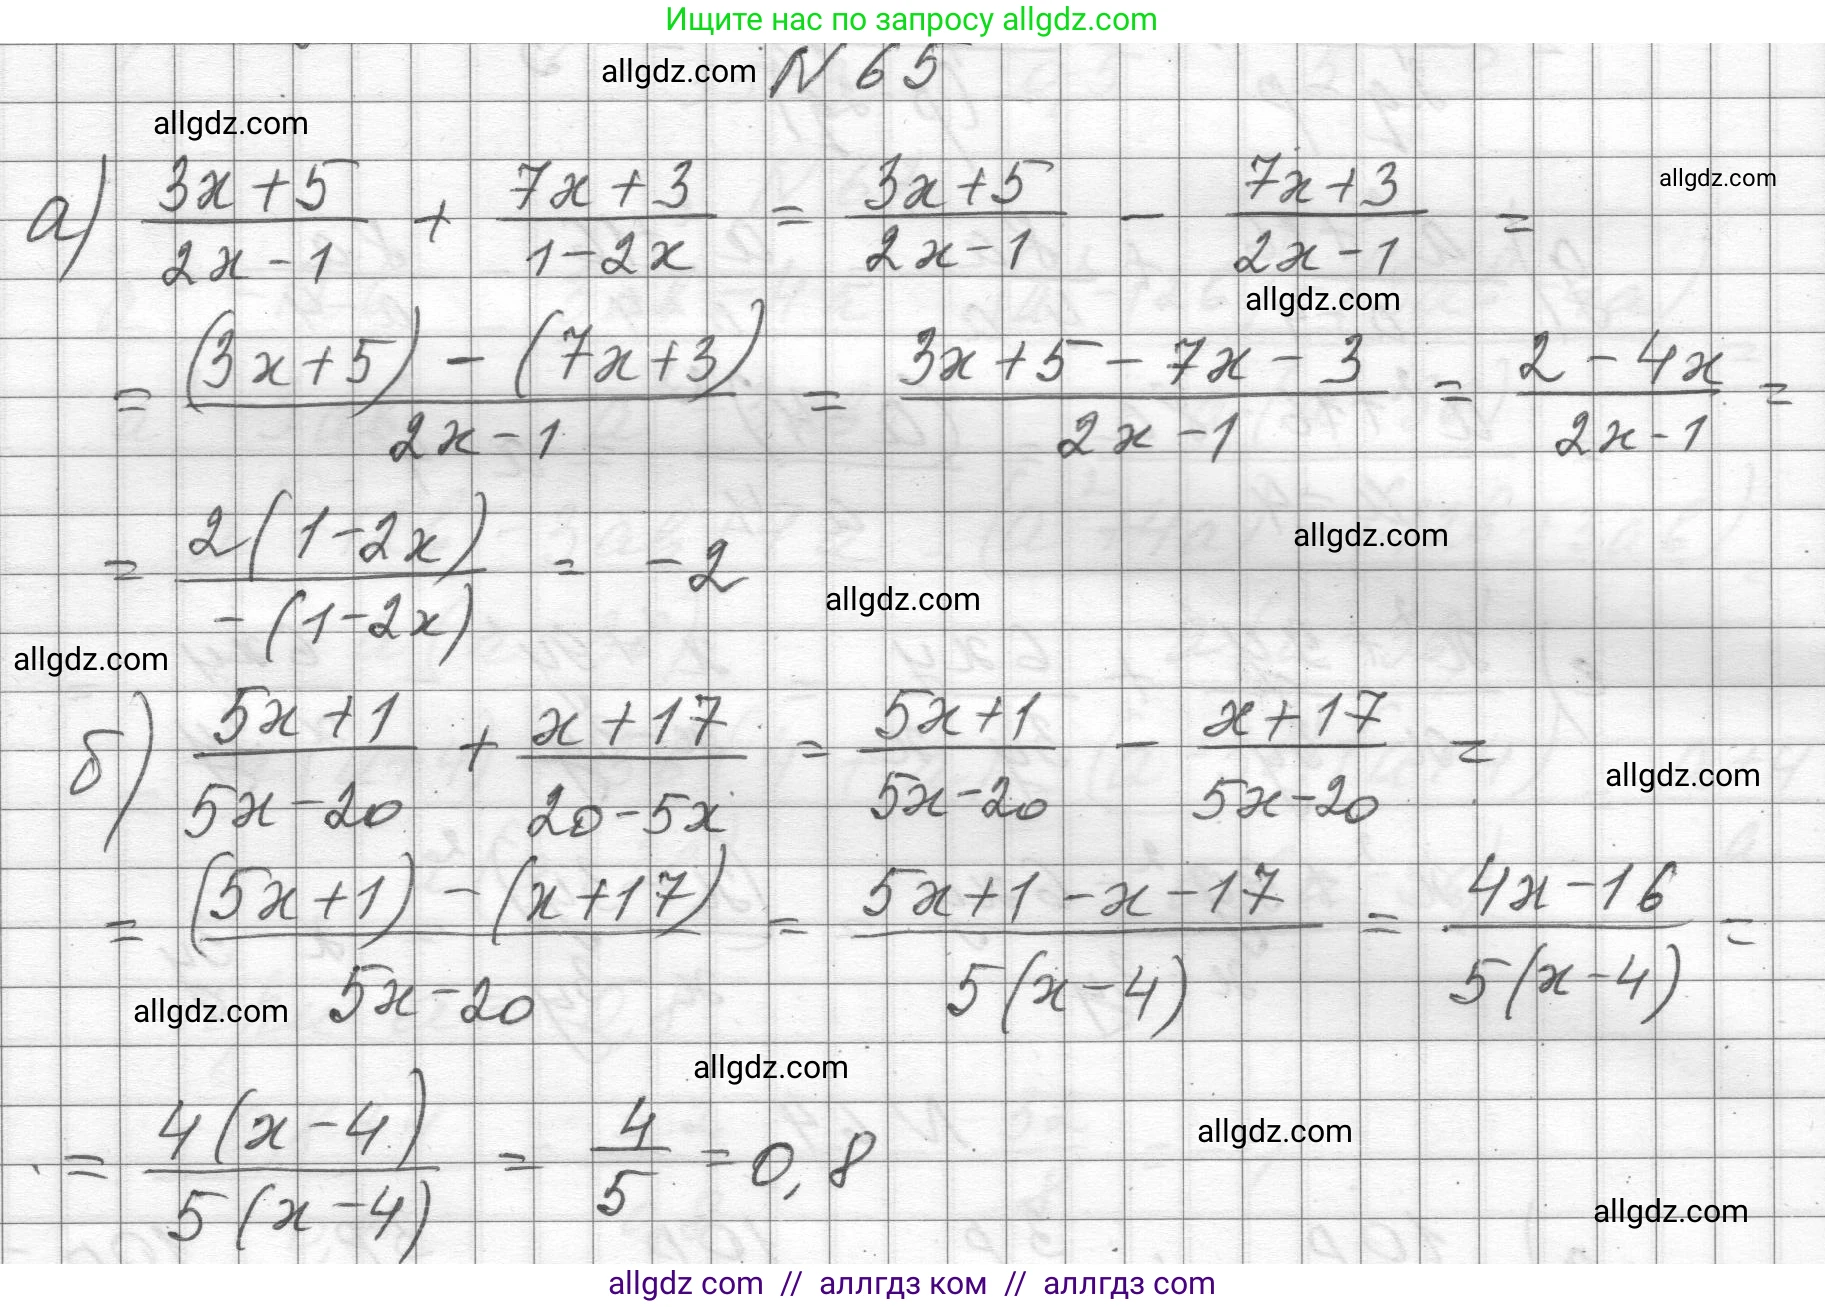 Ищите нас по запросу allgdz.com
allgdz.com N 65
allgdz.com
а) (3x+5)/(2x-1) + (7x+3)/(1-2x) = (3x+5)/(2x-1) - (7x+3)/(2x-1) =
allgdz.com
allgdz.com
= ((3x+5)-(7x+3))/(2x-1) = (3x+5-7x-3)/(2x-1) = (2-4x)/(2x-1) =
= (2(1-2x))/(-(1-2x)) = -2
allgdz.com
allgdz.com
allgdz.com
б) (5x+1)/(5x-20) + (x+17)/(20-5x) = (5x+1)/(5x-20) - (x+17)/(5x-20) =
allgdz.com
= ((5x+1)-(x+17))/(5x-20) = (5x+1-x-17)/(5(x-4)) = (4x-16)/(5(x-4)) =
allgdz.com
allgdz.com
= (4(x-4))/(5(x-4)) = 4/5 = 0,8
allgdz.com
allgdz.com
allgdz com // аллгдз ком // аллгдз com